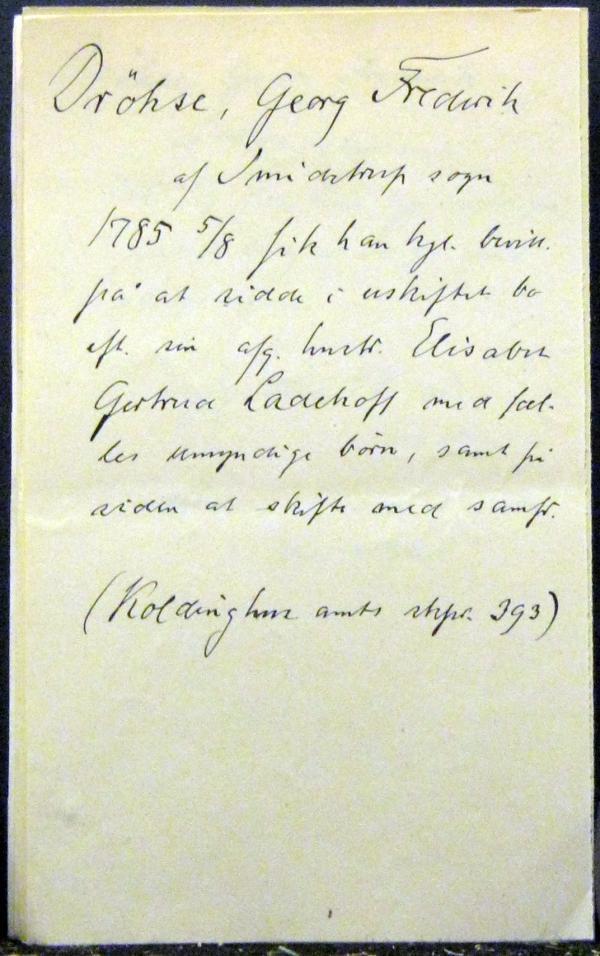 Dröhse, Georg Fredrik
af Smidstrup sogn
1785 5/8 fik han kgl. bevill.
på at sidde i uskiftet bo
eft. sin afg. hustr. Elisabet
Gertrud Ladehoff med fæl-
les umyndige börn, samt på
siden at skifte med samfr.
(Koldinghus amts skpr. 393)